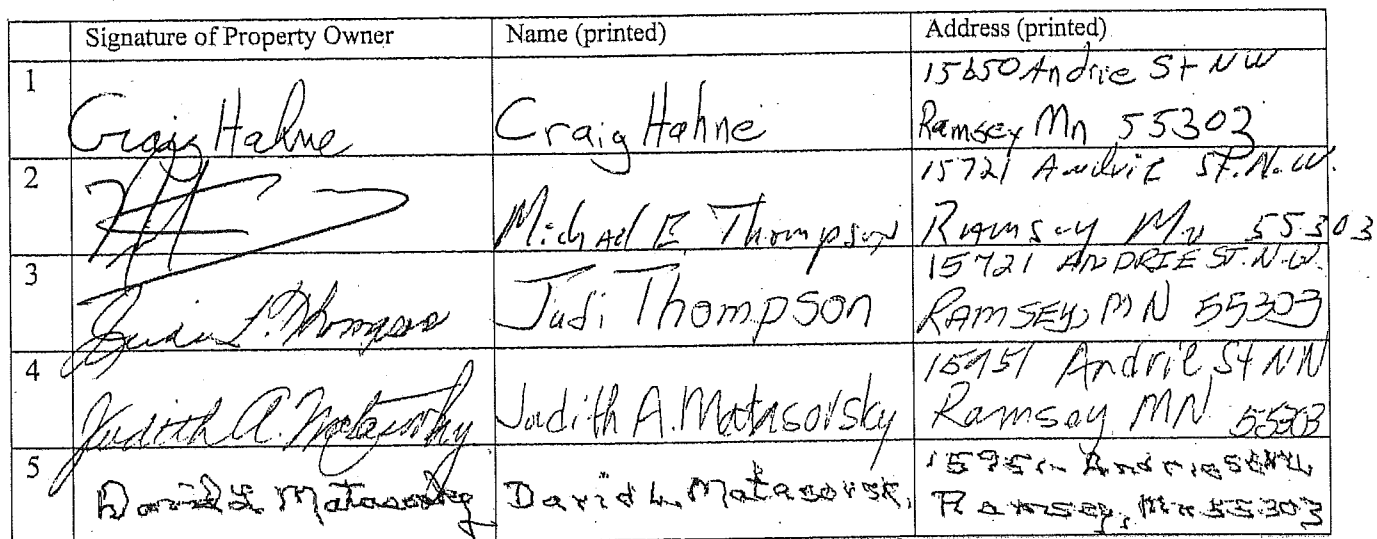 Signature of Property Owner Name (printed) Address (printed)
1 Craig Hahne Craig Hahne 15650 Andrie St NW
Ramsey Mn 55303
2 Michael E. Thompson 15721 Andrie St. N.W.
Ramsey Mn 55303
3 Judi Thompson 15721 ANDRIE ST. N.W.
RAMSEY, MN 55303
4 Judith A. Matasovsky Judith A. Matasovsky 15951 Andrie St NW
Ramsey MN 55303
5 David L Matasovsky David L. Matasovsk 15951 Andrie
Ramsey, Mn 55303